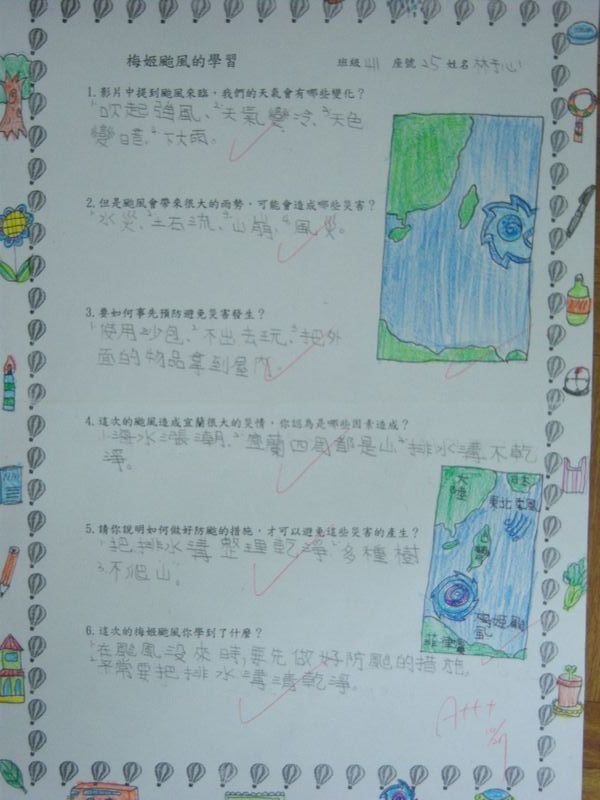 梅姬颱風的學習
班級 411 座號 25 姓名 林
1.影片中提到颱風來臨，我們的天氣會有哪些變化？
1.吹起強風、2.天氣變冷、3.天色
變暗、4.下大雨。
2.但是颱風會帶來很大的雨勢，可能會造成哪些災害？
1.水災、2.土石流、3.山崩、4.風災。
3.要如何事先預防避免災害發生？
1.使用沙包、2.不出去玩、3.把外
面的物品拿到屋內。
4.這次的颱風造成宜蘭很大的災情，你認為是哪些因素造成？
1.海水漲潮、2.宜蘭四周都是山、3.排水溝不乾
淨。
大陸
日本
東北季風
台灣
梅姬颱風
菲律賓
5.請你說明如何做好防颱的措施，才可以避免這些災害的產生？
1.把排水溝整理乾淨、2.多種樹
3.不爬山。
6.這次的梅姬颱風你學到了什麼？
1.在颱風沒來時，要先做好防颱的措施，
2.平常要把排水溝清乾淨。
A+++